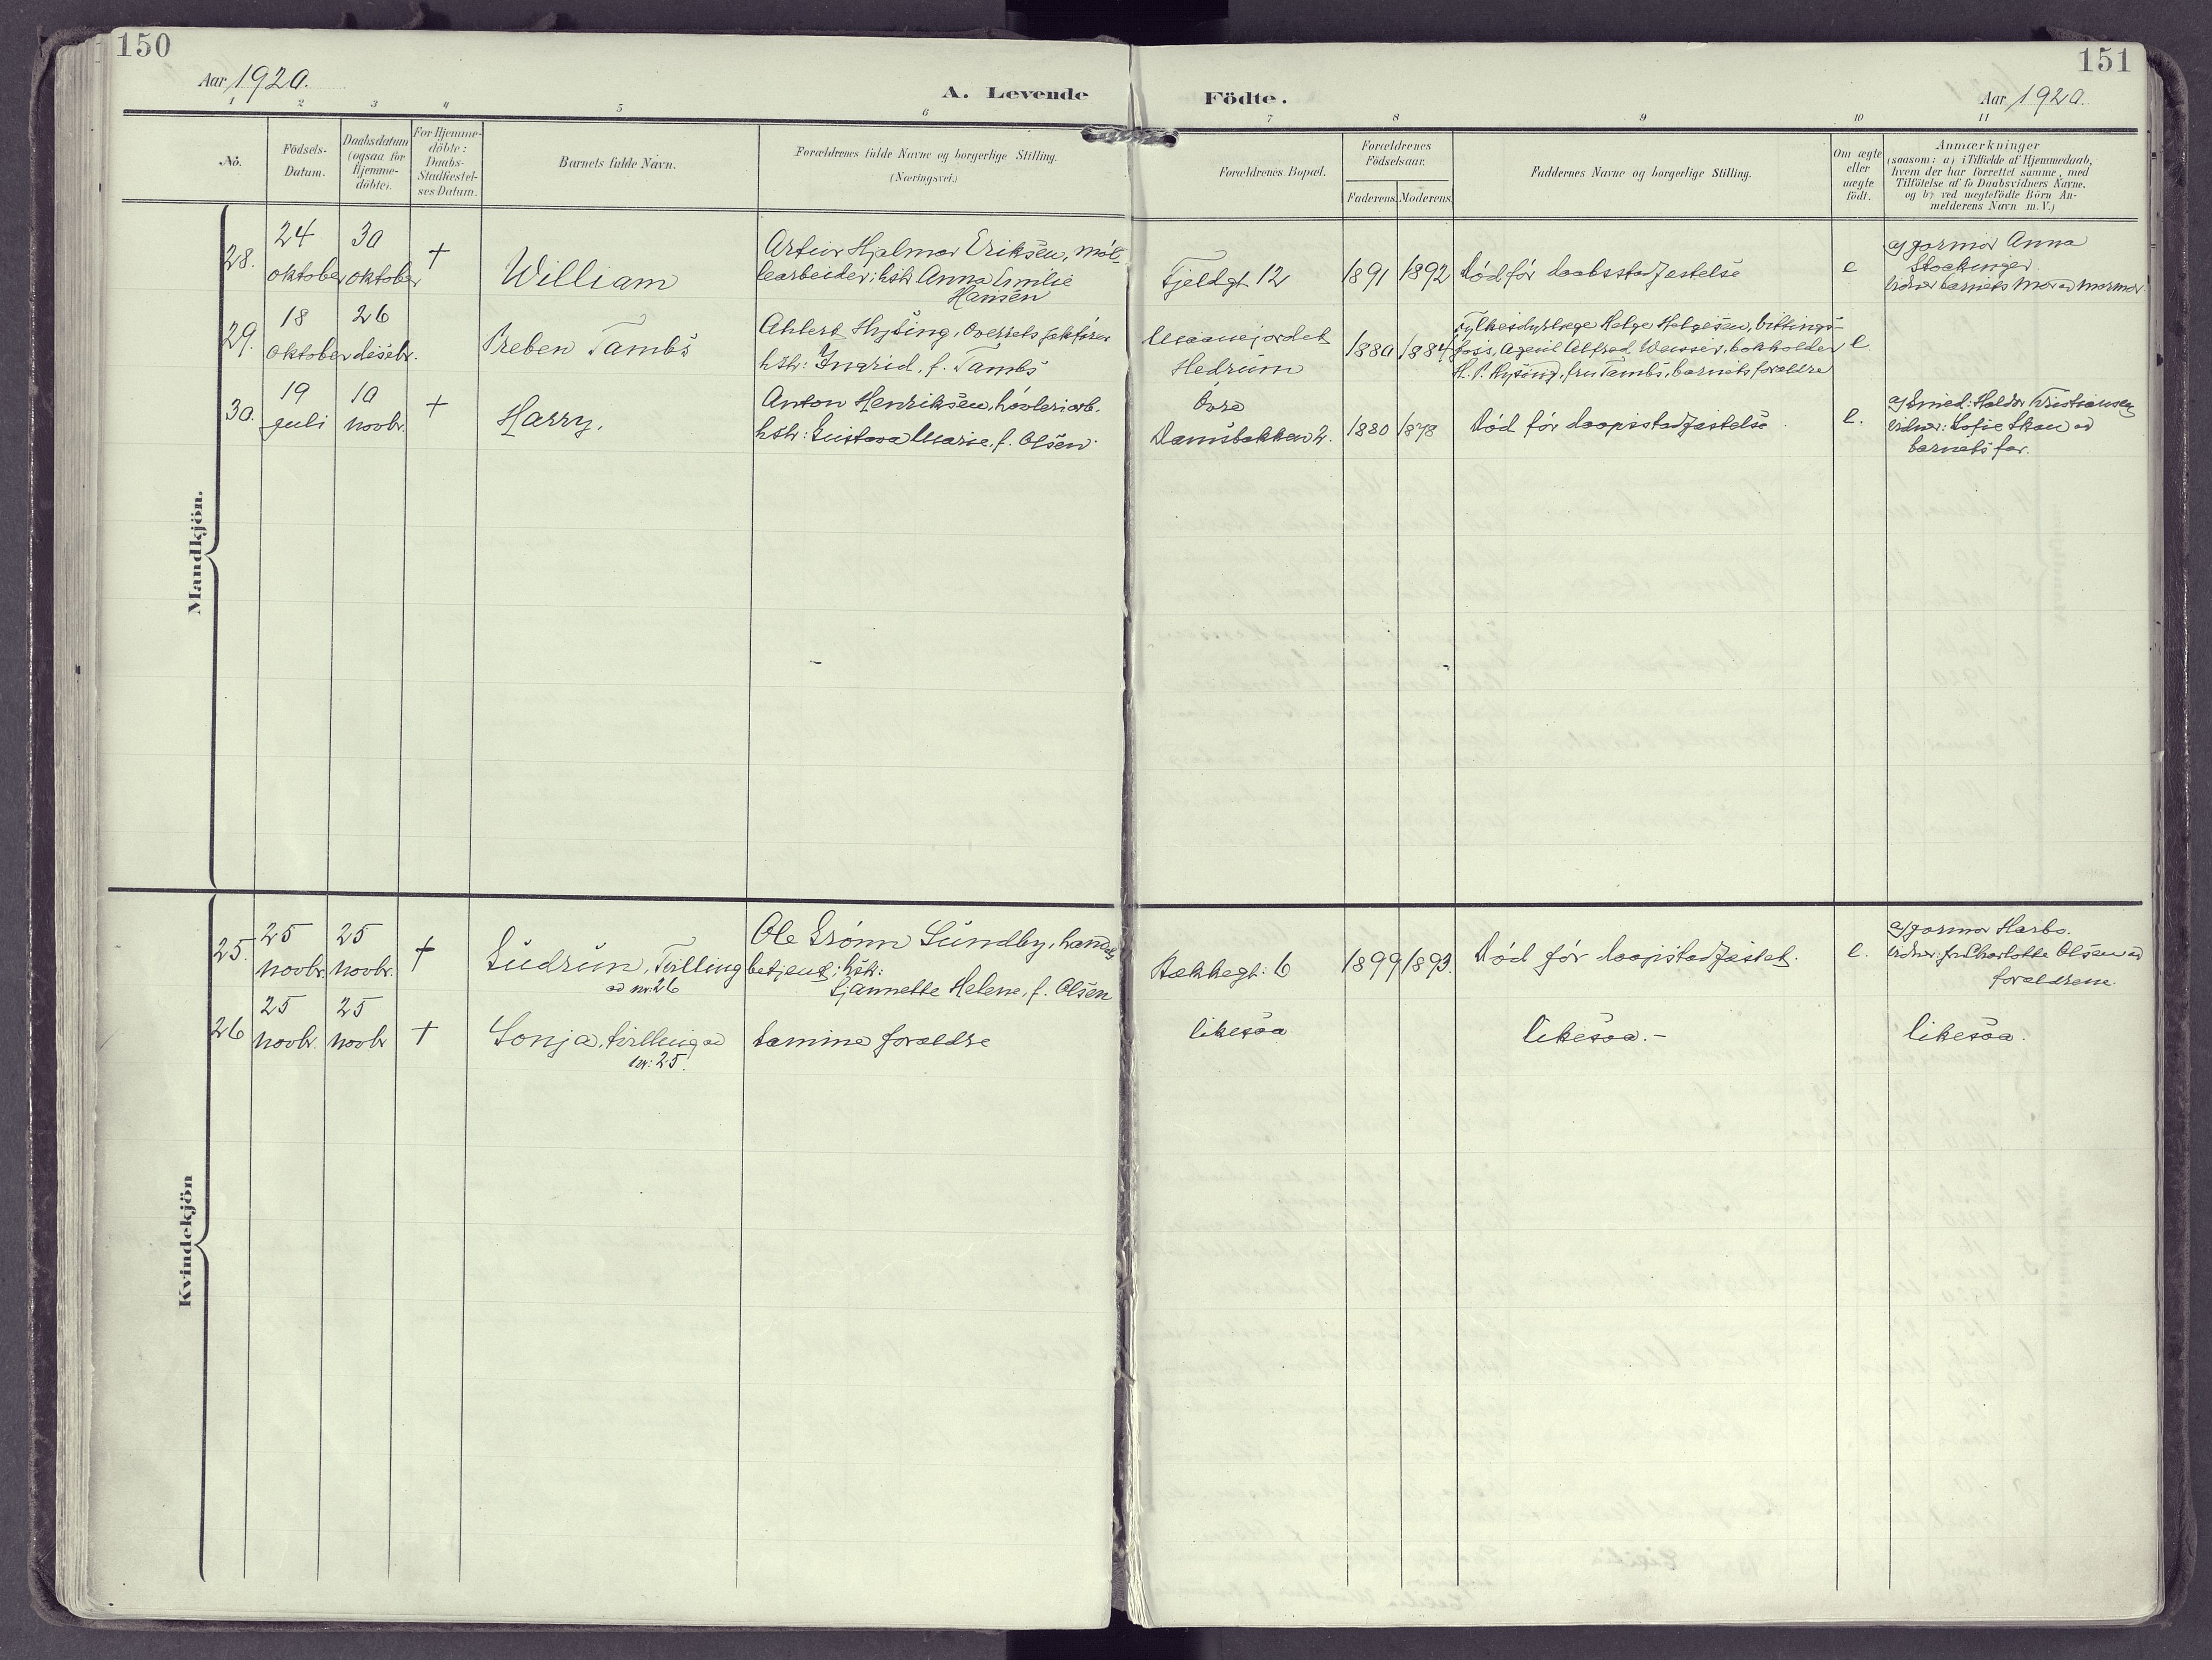 150
151
Aar 1920.
A. Levende
Födte.
Aar 1920.
1 2 3 4 5 6 7 8 9 10 11
No.
Födsels-
Datum.
Daabsdatum
(ogsaa for
Hjemme-
döbte).
For Hjemme-
döbte:
Daabs-
Stadfæstel-
ses Datum.
Barnets fulde Navn.
Forældrenes fulde Navne og borgerlige Stilling.
(Næringsvei.)
Forældrenes Bopæl.
Forældrenes
Födselsaar.
Faderens. Moderens.
Faddernes Navne og borgerlige Stilling.
Om ægte
eller
uægte
födt.
Anmærkninger
(saasom: a) i Tilfælde af Hjemmedaab,
hvem der har forrettet samme, med
Tilföielse af to Daabsvidners Navne.
og b) ved uægtefödte Börn An-
melderens Navn m. V.)
Mandkjön.
28.
24
oktober
30
oktober
†
William
Artur Hjalmar Eriksen, möl-
learbeider; hstr Anna Emilie
Hansen
Fjeldgt 12
1891 1892
Död før daabsstadfæstelse
e
a) jormor Anna
Stockinger
vidner barnets mor ad mormor.
29.
18
oktober
26
desebr.
Preben Tambs
Ahlert Hysing, Overrets
hstr: Ingrid, f. Tambs
Hedrum
1880 1884
Fylkesdyrlæge Helge Helgesen, Vittings-
foss, Agent Alfred, bokholder
H. P. Hysing, fru Tambs, barnets forældre
e.
30.
19
juli
10
novbr.
†
Harry.
Anton Henriksen, høvleriarb.
hstr: Gustava Marie, f. Olsen.
Øvre
Damsbakken 2.
1880 1878
Död før daapsstadfæstelse.
e.
a) Smed: Haldor Kristiansen
vidner: Sofie Skau ad
barnets far.
Kvindekjön
25.
25
novbr.
25
novbr.
†
Gudrun, Tvilling
ad nr. 26
Ole Grönn Sundby, handels
betjent; hstr:
Sjannette Helene, f. Olsen
Bækkegt: 6
1899 1893.
Död før daapsstadfæstet.
e.
a) jormor Harbo.
vidner: fru Charlotte Olsen ad
forældrene.
26
25
novbr.
25
novbr
†
Sonja, tvilling ad
nr: 25.
samme forældre
likesaa
likesaa.-
likesaa.